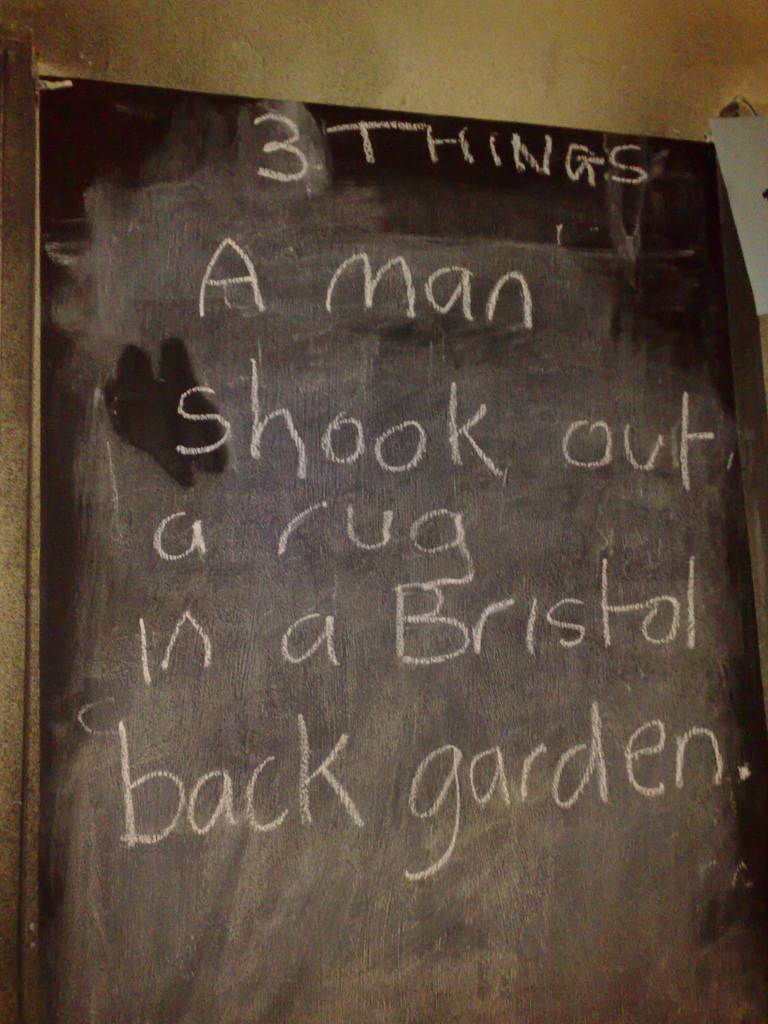 3 THINGS
A man
shook out
a rug
in a Bristol
back garden.